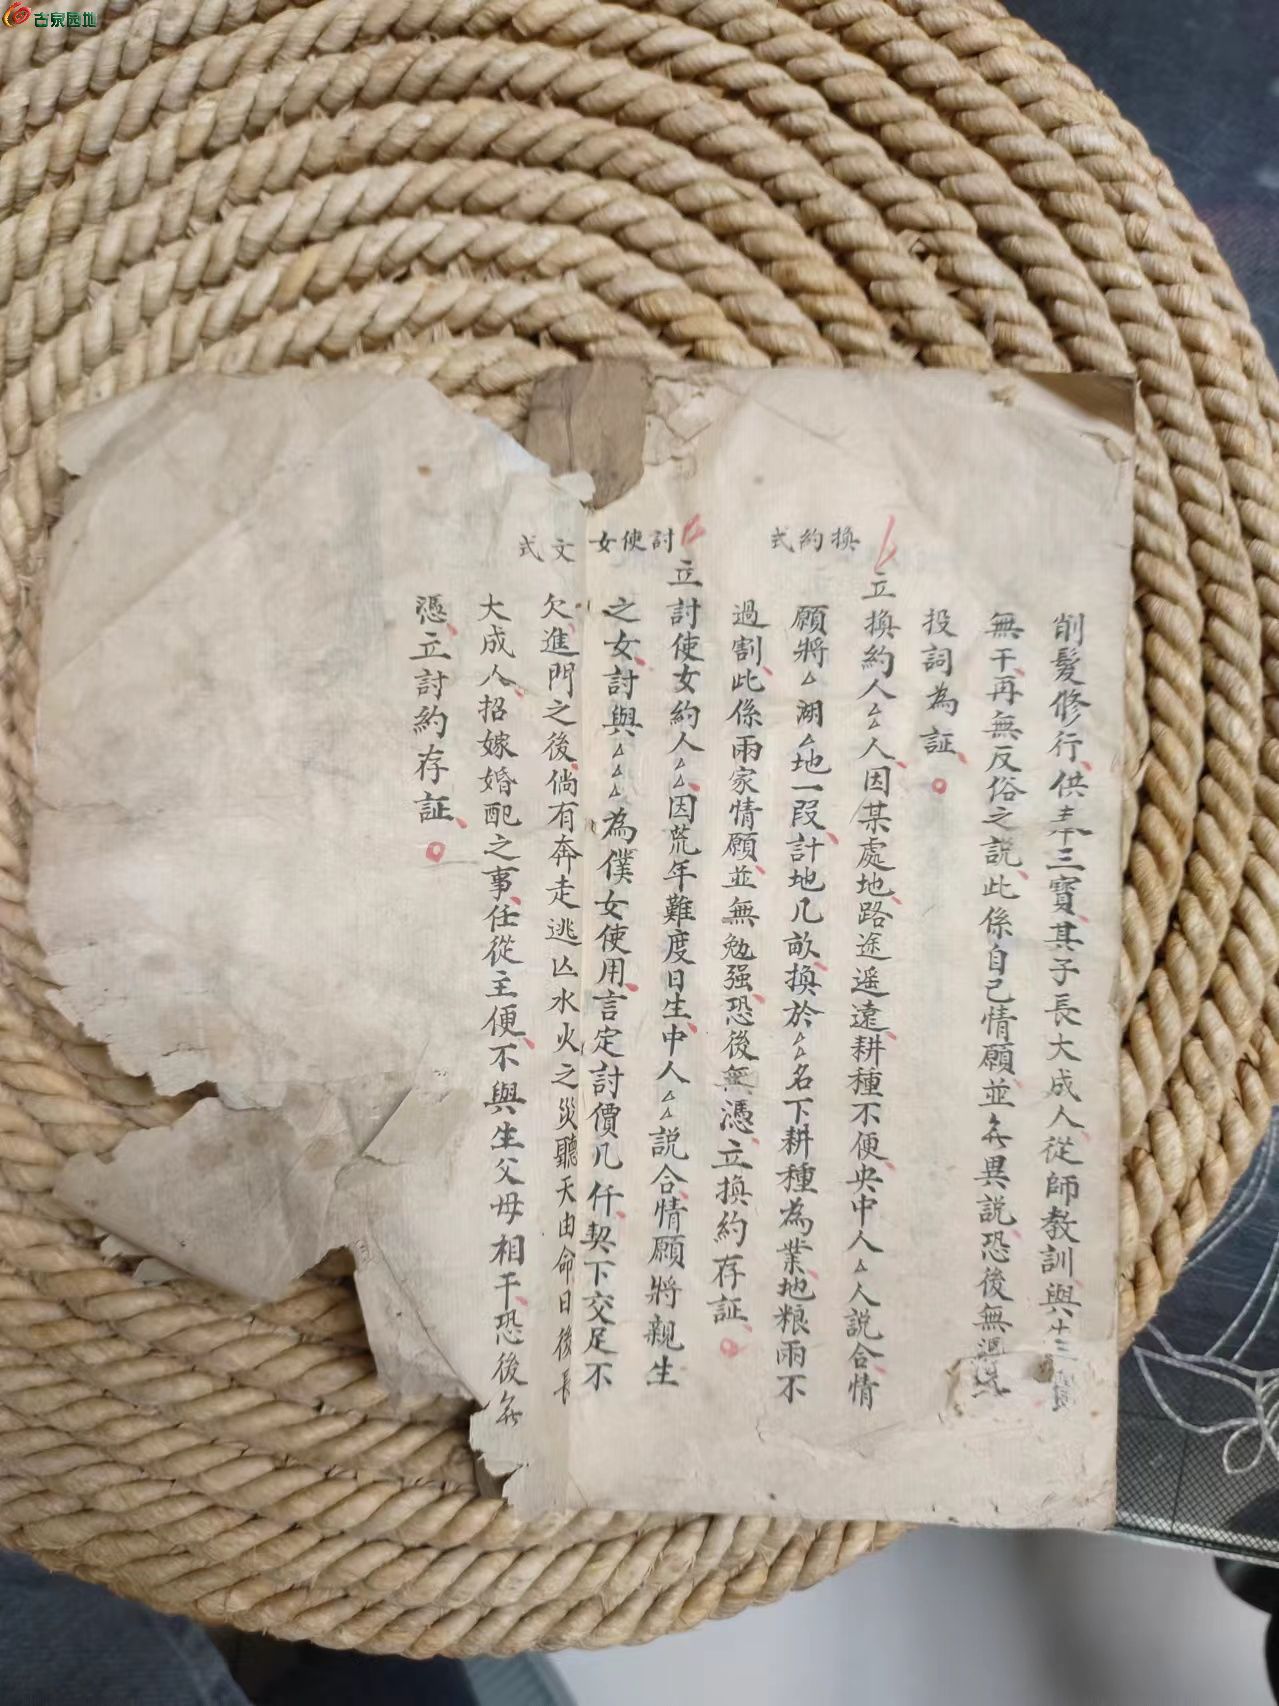 古泉园地
削髮修行供奉三寶其子長大成人從師教訓與士三寶
無干再無反俗之説此係自己情願並無異説恐後無憑
投詞為証
換約式
立換約人厶厶人因某處地路途遥遠耕種不便央中人厶人説合情
願將厶湖厶地一段計地几畝換於厶厶名下耕種為業地粮兩不
過割此係兩家情願並無勉强恐後無憑立換約存証
討使女文式
立討使女約人厶厶因荒年難度日生中人厶厶説合情願將親生
之女討與厶厶厶為僕女使用言定討價几仟契下交足不
欠進門之後倘有奔走逃亾水火之災聽天由命日後長
大成人招嫁婚配之事任從主便不與生父母相干恐後無
憑立討約存証